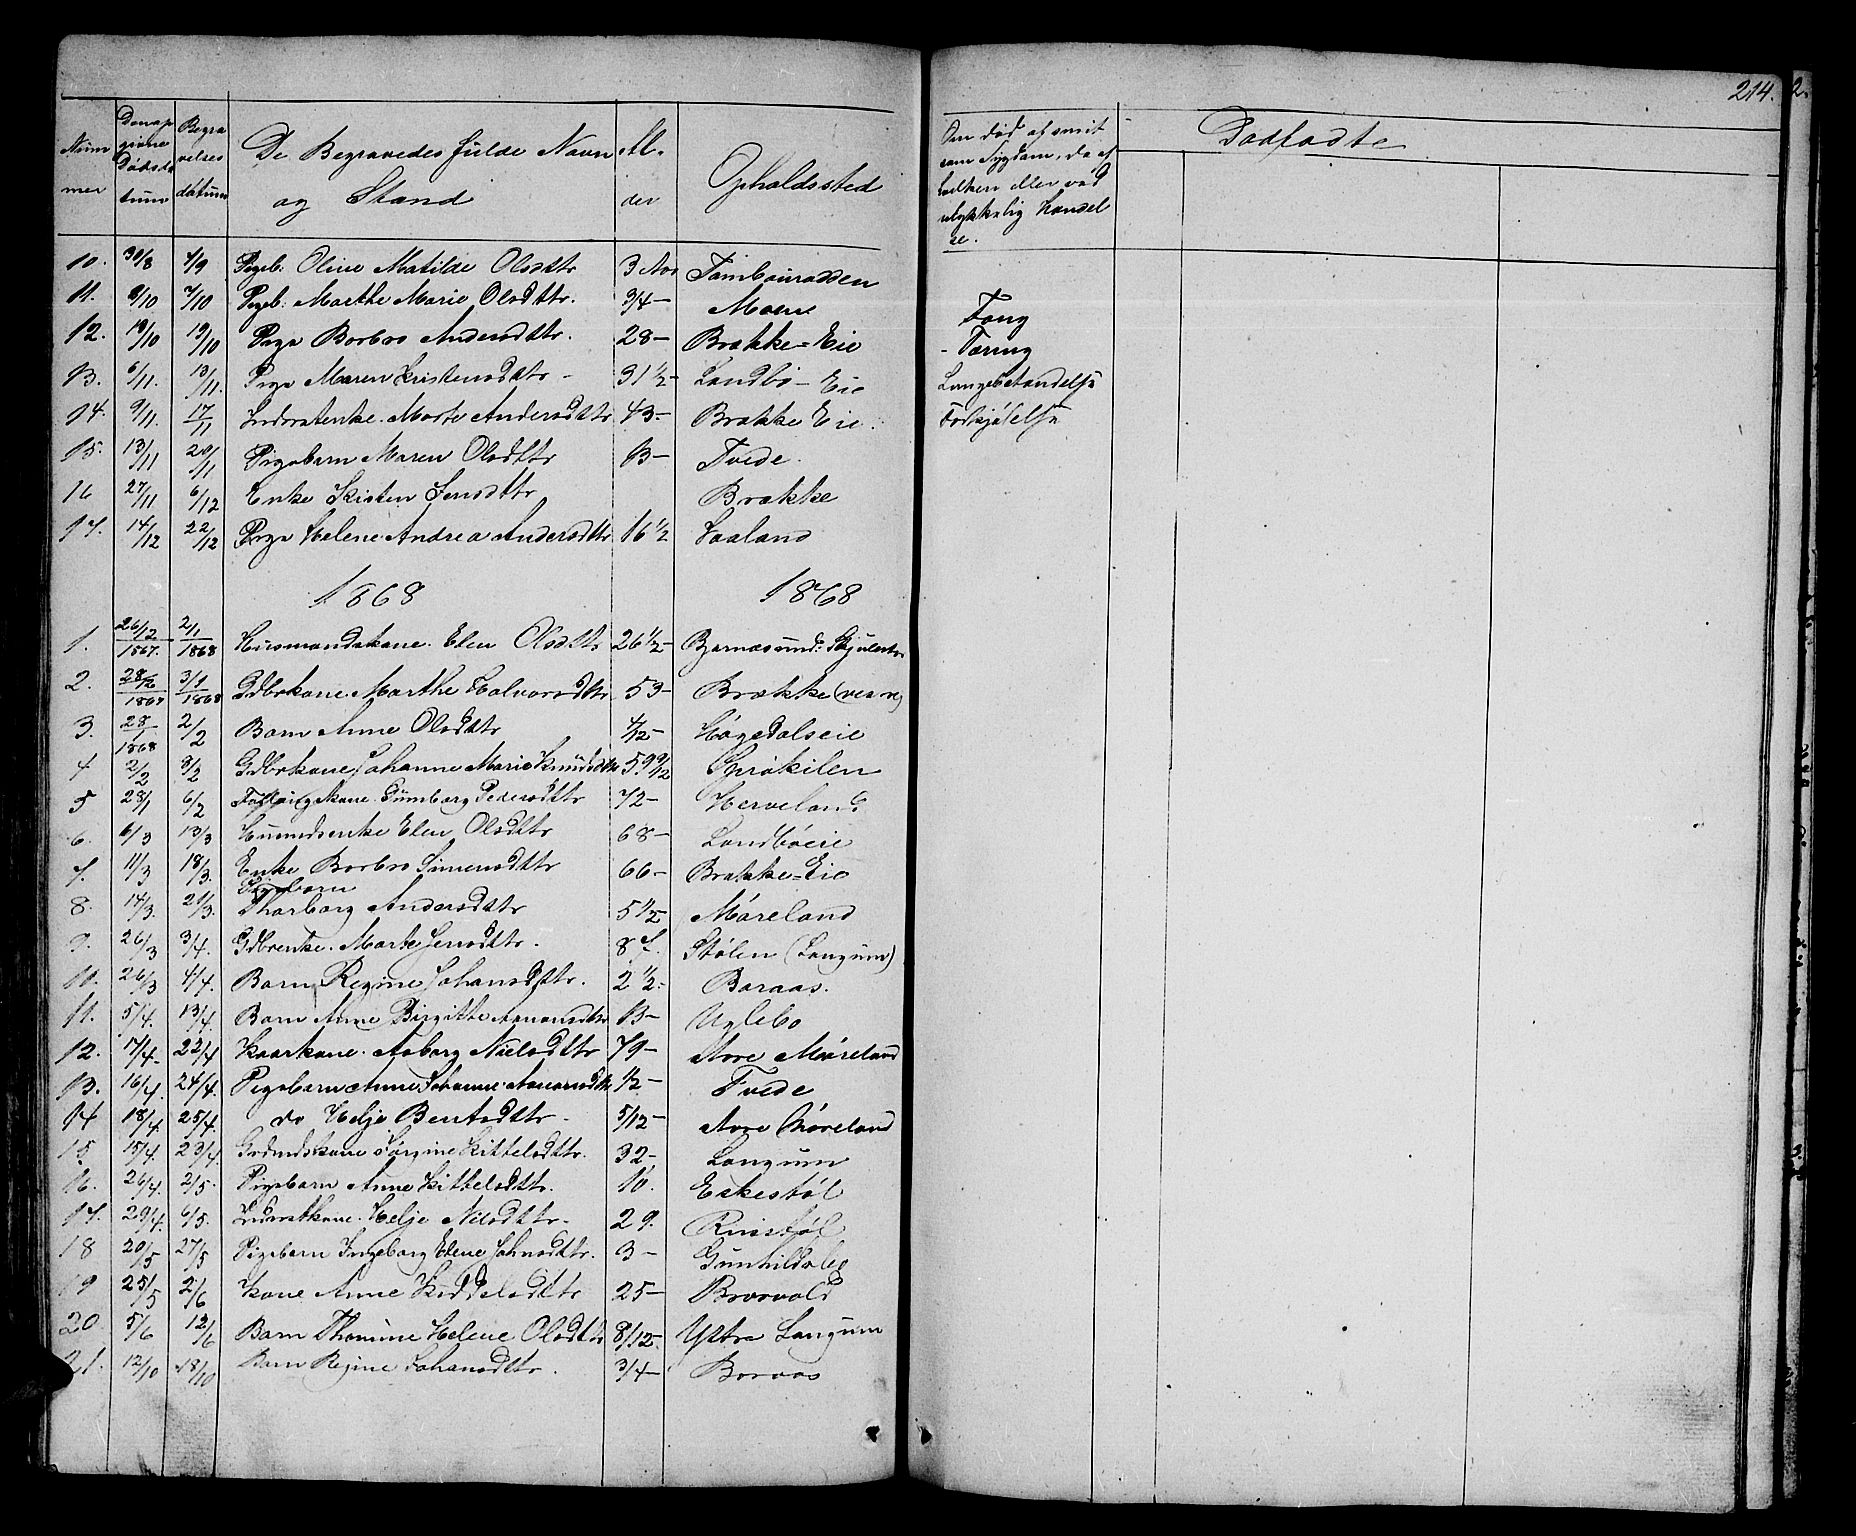 214.
Num mer | Den ap givne Døds da tum | Begra velses datum | De Begravedes fulde Navn og Stand | Al- der | Opholdssted | Om død af smit som Sygdom, da af hvilken eller ved ulykkelig Hændel se. | Dødfødte
10. 30/8 4/9 Pigeb. Oline Matilde Olsdttr 3 Aar
11. 2/10 7/10 Pigeb. Marthe Marie Olsdttr. 3/4 – Moene
12. 10/10 19/10 Pige Borbro Andersdttr. 28 – Brække-Eie Tæring
13. 6/11. 13/11. Pige Maren Kristensdttr – 31 1/2 – Landbø-Eie Lungebetændelse
14. 9/11. 17/11 Inderstenke. Marte Andersdttr 43 – Brække Eie. Forkjølelse
15. 13/11 20/11 Pigebarn Maren Olsdttr 13 – Tvede.
16 27/11 6/12 Enke Kisten Jensdttr Brække
17. 14/12 22/12 Pige Helene Andrea Andersdttr 16 1/2 Saaland
1868 1868
1. 26/12 1867. 2/1 1868 Husmandskone. Elen Olsdttr 26 1/2 – Bjarnesund
2. 28/12 1867 3/1 1868 Gdbrkone. Marthe Halvorsdttr 53 – Brække
3. 28/1 1868 2/2 Barn Anne Olsdttr 4/12 – Høgedalseie
4 2/2 8/2 Gdbrkone Johanne Marie Knudsdttr 59 9/12 Sprøkilen
5 28/1 6/2 Pedersdttr 72 – Herveland
6. 6/3 13/3 Husmdsenke Elen Olsdttr 68 – Landbøeie
7. 11/3 18/3. Enke Borbro Simensdttr 66 – Brække-Eie
8. 14/3. 21/3. Pigebarn Thorborg Andersdttr 5 1/2 Møreland
9. 26/3 3/4. Gdbrenke. Marte Jensdttr. 87. Stølen (Langum)
10. 26/3 4/4. Barn Regine Johansdttr. 2 1/2. Boraas.
11. 5/4. 13/4. Barn Anne Birgitte 13 – Uglebo
12. 17/4. 22/4 Kaarkone. Aaborg Nielsdttr 79 – Nore Møreland
13. 16/4. 24/4. Pigebarn Anne Johanne 1/2 – Tvede
14 18/4 25/4. do Helje Bentsdttr. 5/12 – Nore Møreland
15. 15/4. 23/4. Grdmdskone Jørgine Kittelsdttr. 32 – Langum
16. 26/4. 2/5. Pigebarn Anne Kittelsdttr. 10. Eskestøl
17. 29/4. 6/5. Inderstkone. Helje Nilsdttr. 29. Ruistøl
18 20/5 27/5 Pigebarn Ingeborg Elene Johnsdttr. 3 –
19 25/5 2/6 Kone Anne Kiddelsdttr 25 – Brovold
20. 5/6 12/6 Barn Thomine Helene Olsdttr 8/12 – Ystre Langum
21. 12/10 18/10 Barn Regine Johansdttr. 3/4 – Boraas